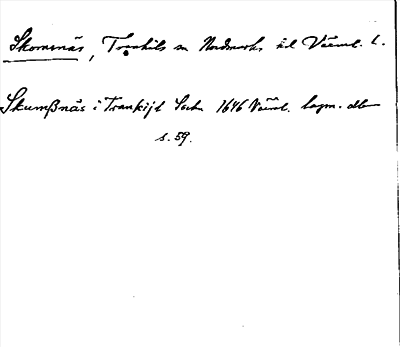 Skomsnäs, Trankils sn Nordmarks hd Värml. l.
Skumßnäs i Trankijl Sochn 1646 Värml. lagm. db
s. 59.